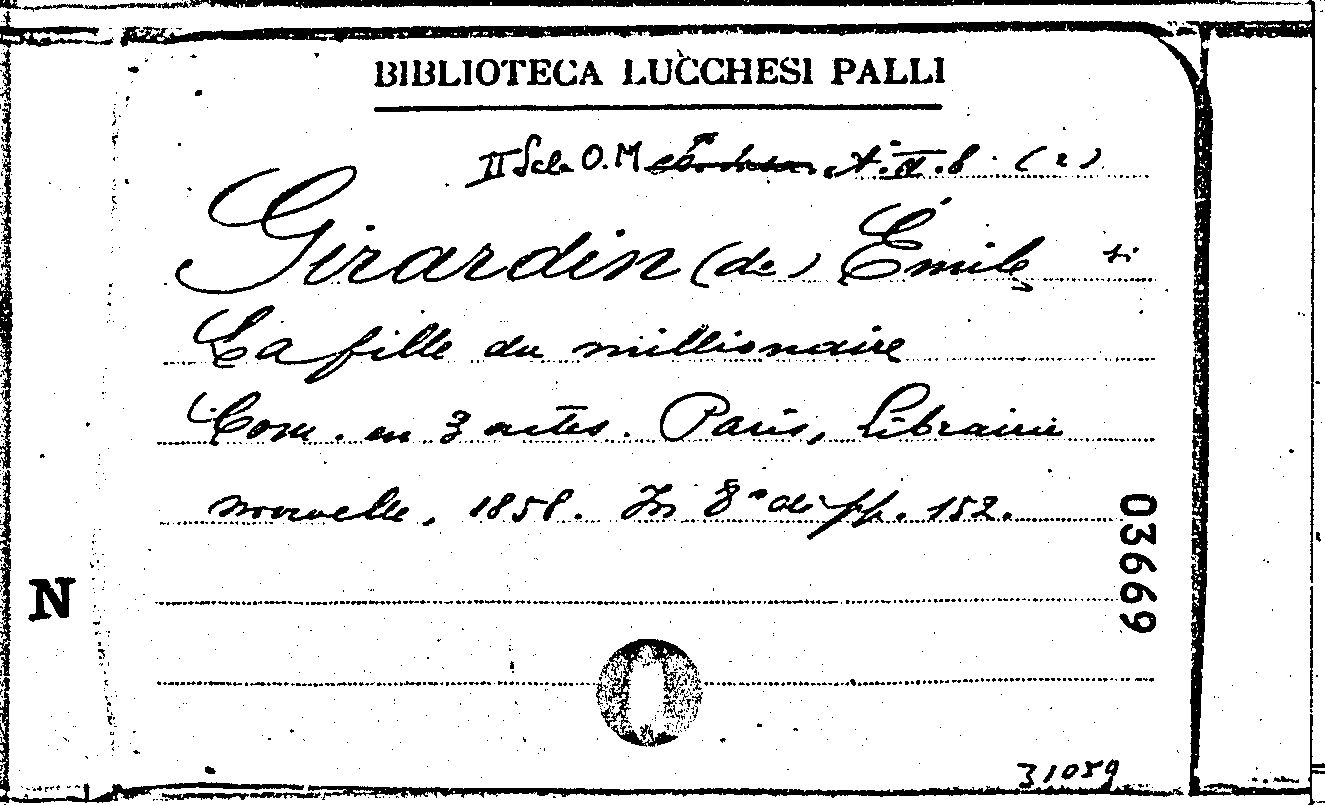 BIBLIOTECA LUCCHESI PALLI
II Sala O. M A. II. 8. (2)
Girardin (de) Émile
La fille du millionaire
Com. en 3 actes. Paris, Librairie
nouvelle, 1858. In 8° di pp. 152.
03669
N
31089